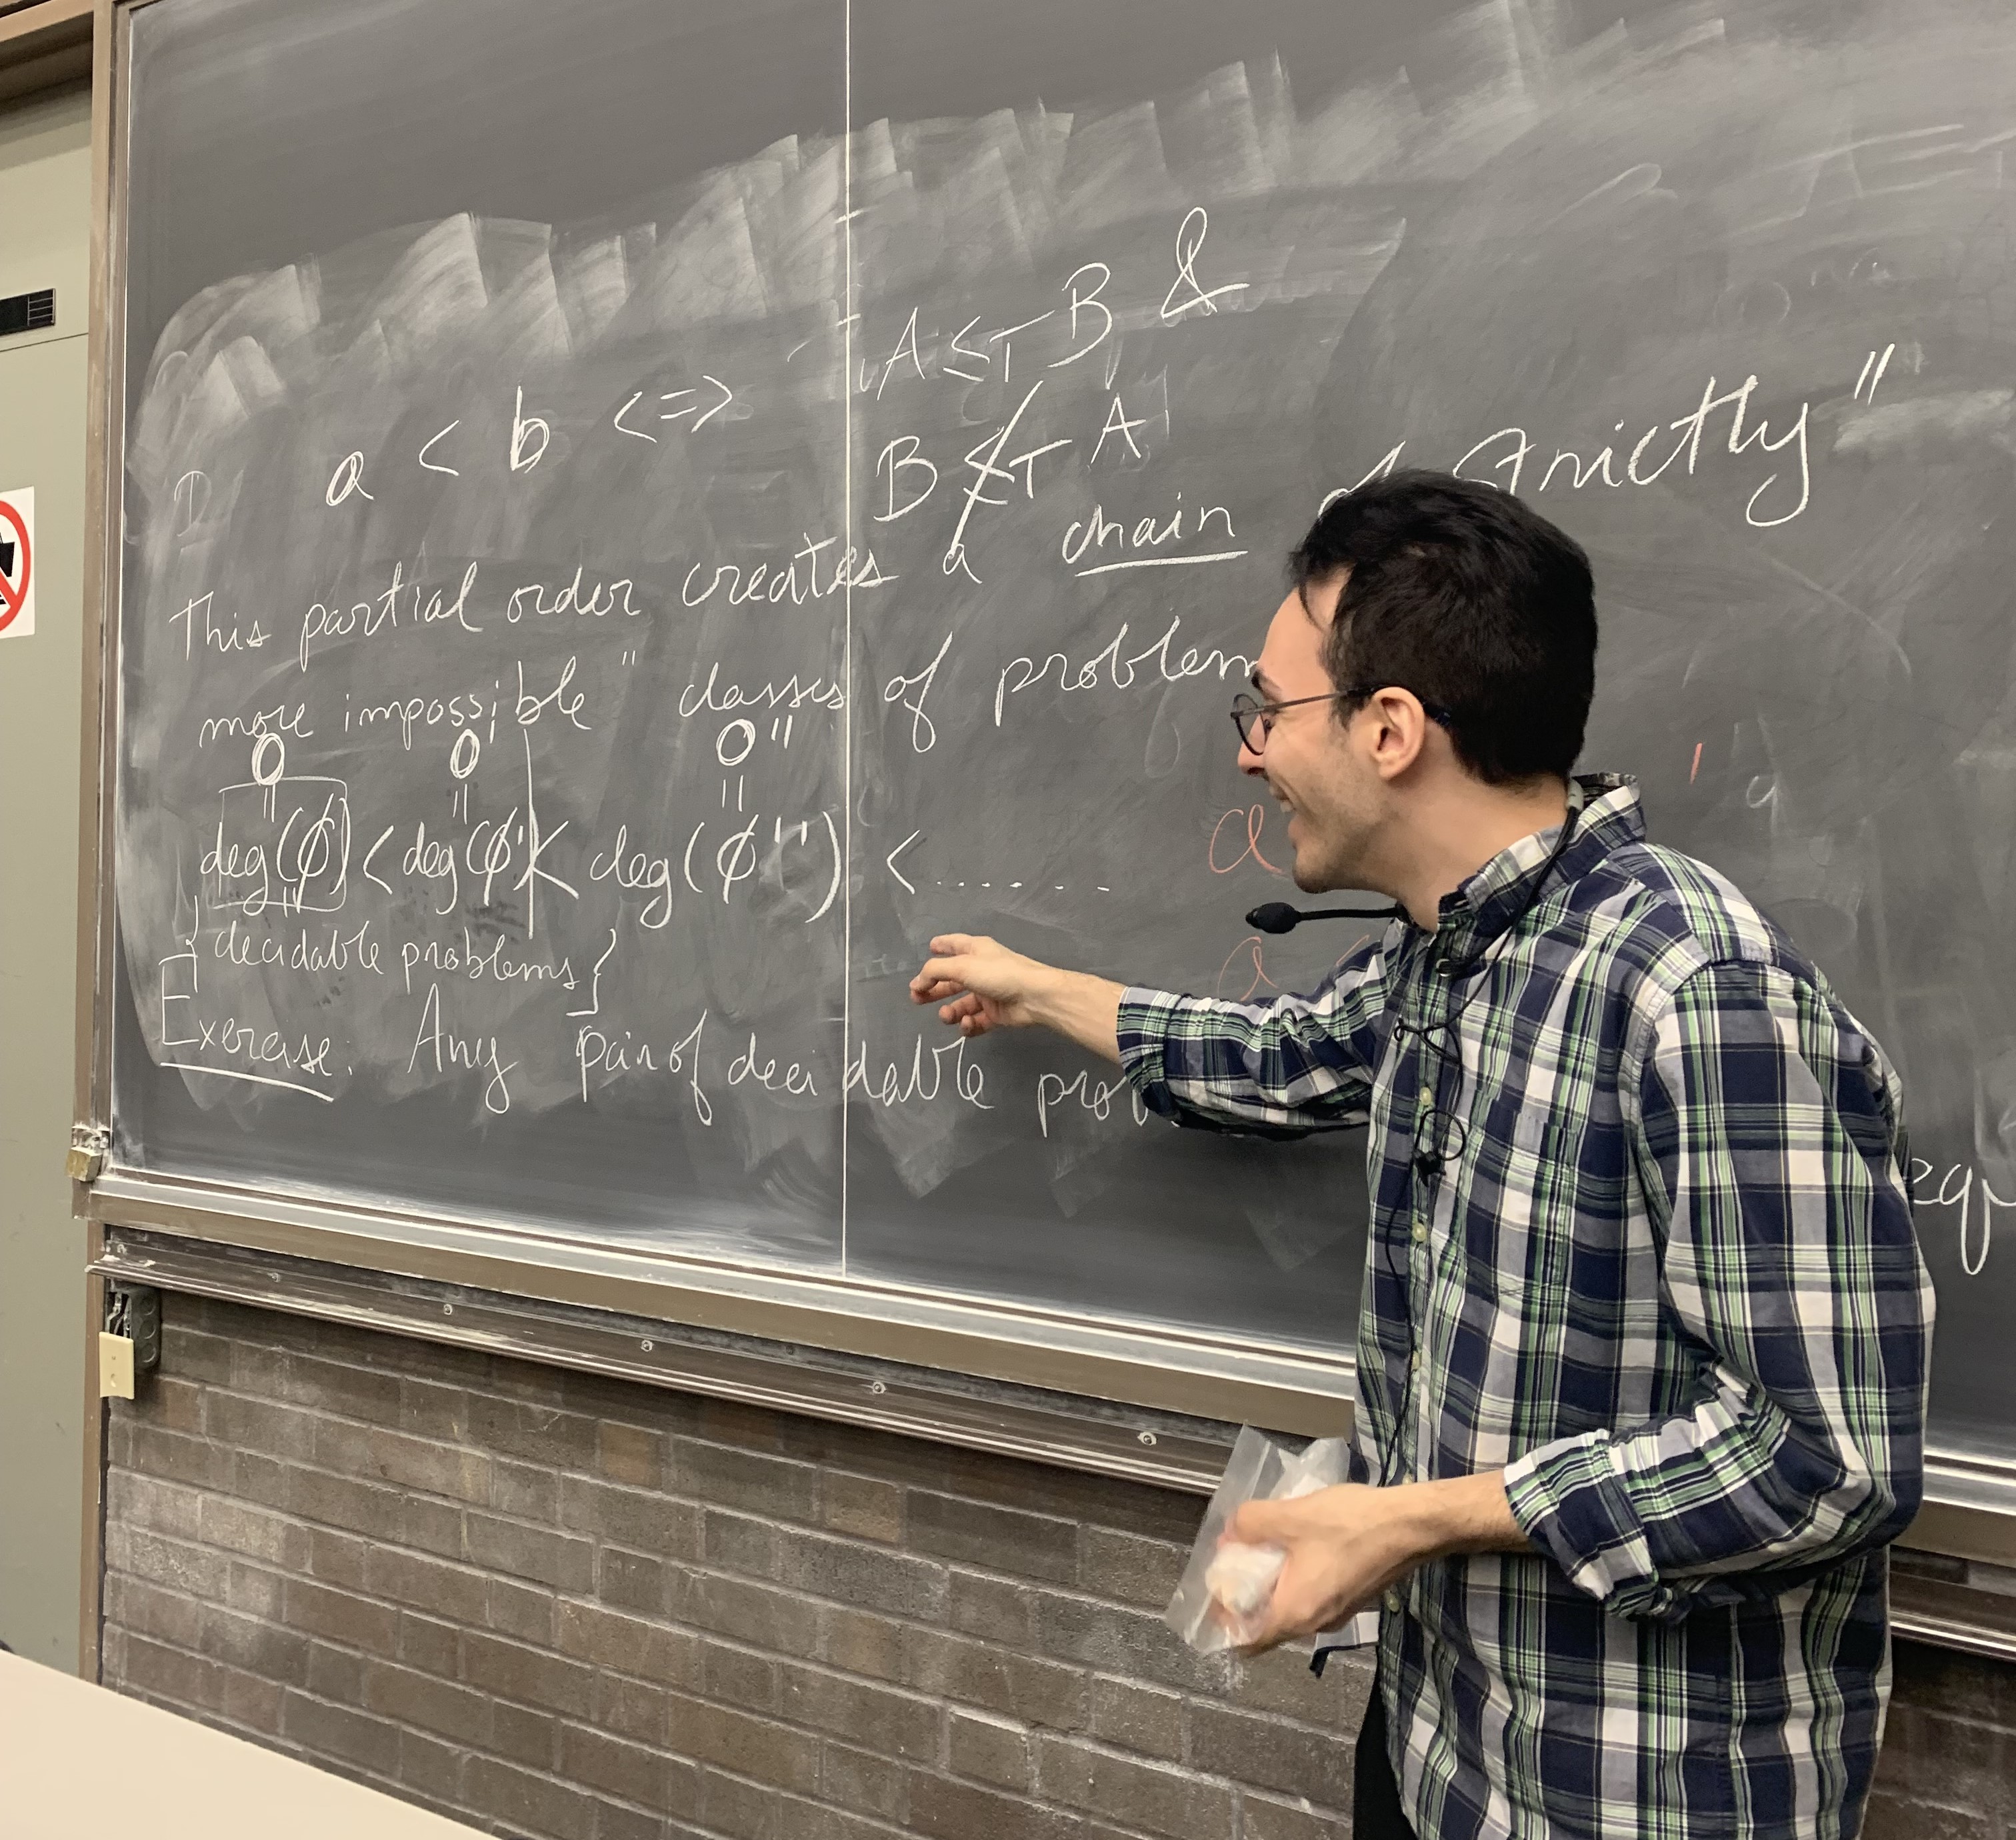 a < b <=> A ≤T B &
B ≰T A
This partial order creates a chain of "strictly"
more impossible" classes of problem
0 0' 0"
= = =
deg(∅) < deg(∅') < deg(∅'') < .......
=
{decidable problems}
Exercise: Any pair of decidable prob
eq
a
a